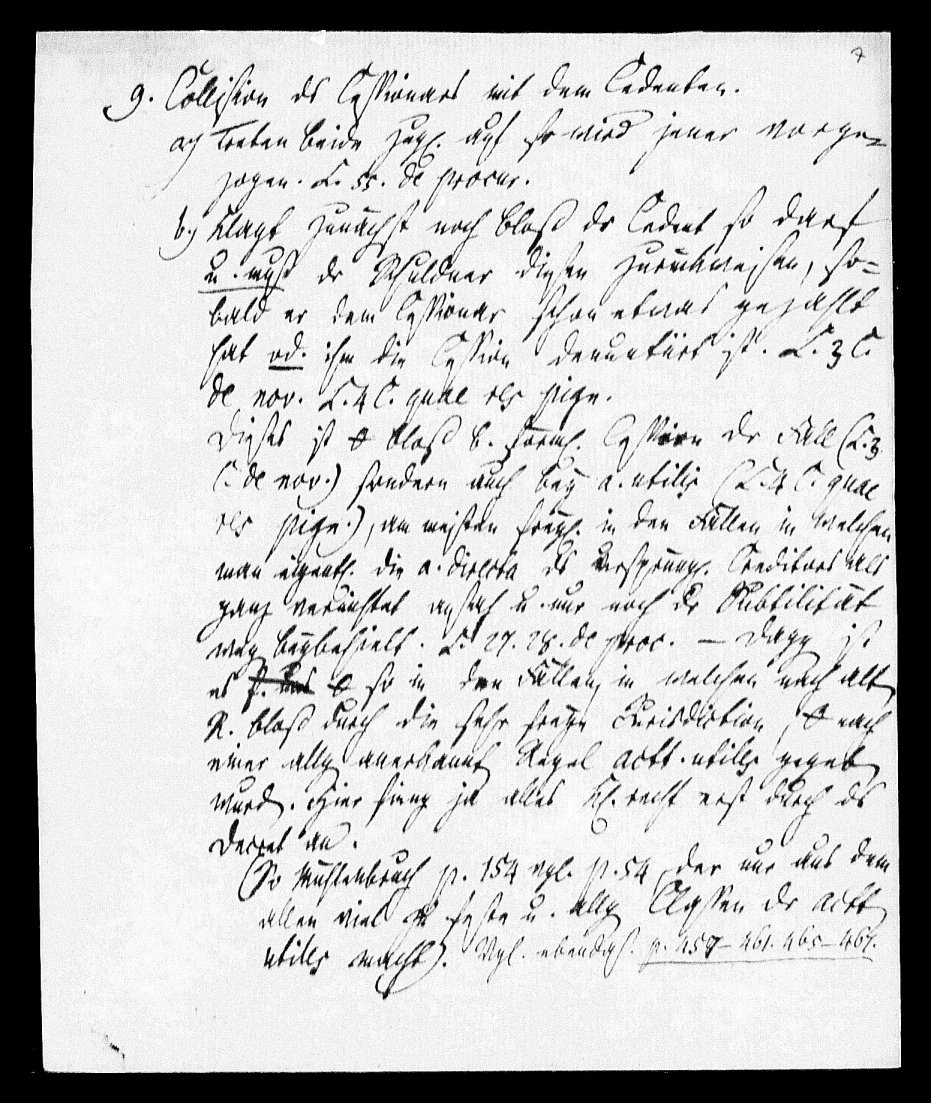 7
9. Collision ds Cessionars mit dem Cedenten.
a) Treten beide zugl. auf so wird jener vorge=
zogen. L. 55. de procur.
b.) Klagt zunächst noch bloß dr Cedent so darf
u. muß dr Schuldner diesen zurückweisen, so=
bald er dem Cessionar schon etwas gezahlt
hat od. ihm die Cession denuntiirt ist. L. 3 C.
de nov. L. 4 C. quae res pign.
Dieses ist bloß b. förml. Cession dr Fall (L. 3
C. de nov.) sondern auch bey a. utilis (L. 4 C. quae
res pign.), am meisten in den Fällen in welchen
man eigentl. die a. directa ds ursprüngl. Creditors als
ganz vernichtet ansah u. nur noch dr Subtilität
weg beybehielt. L. 27. 28. de proc. — Dagg ist
es so in den Fällen, in welchen nach alt
R. bloß durch die sehr freye Jurisdiction, nach
einer allg anerkannt Regel actt. utiles gegeb
wurd. Hier fing ja alles Kl.recht erst durch ds
Decret an.
(So Mühlenbruch p. 154 vgl. p. 54, der nur aus dem
allen viel zu feste u. allg Classen dr actt
utiles macht). Vgl. ebendas. p. 457–461. 465–467.